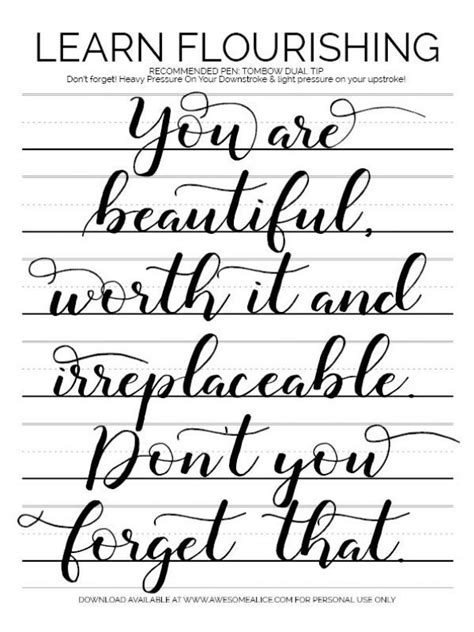 LEARN FLOURISHING
RECOMMENDED PEN: TOMBOW DUAL TIP
Don't forget! Heavy Pressure On Your Downstroke & light pressure on your upstroke!
You are
beautiful,
worth it and
irreplaceable.
Don't you
forget that.
DOWNLOAD AVAILABLE AT WWW.AWESOMEALICE.COM FOR PERSONAL USE ONLY